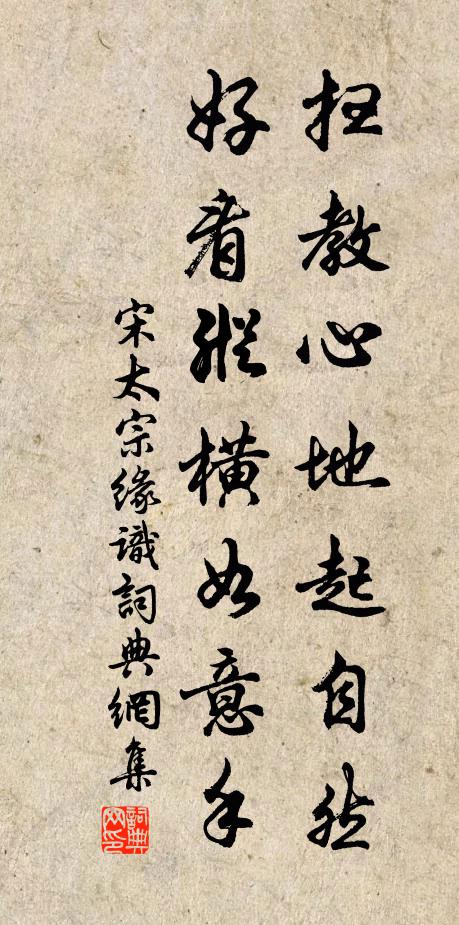 枉教心地起自然
好看縱横如意手
宋太宗緣識詞典網集
詞典網印